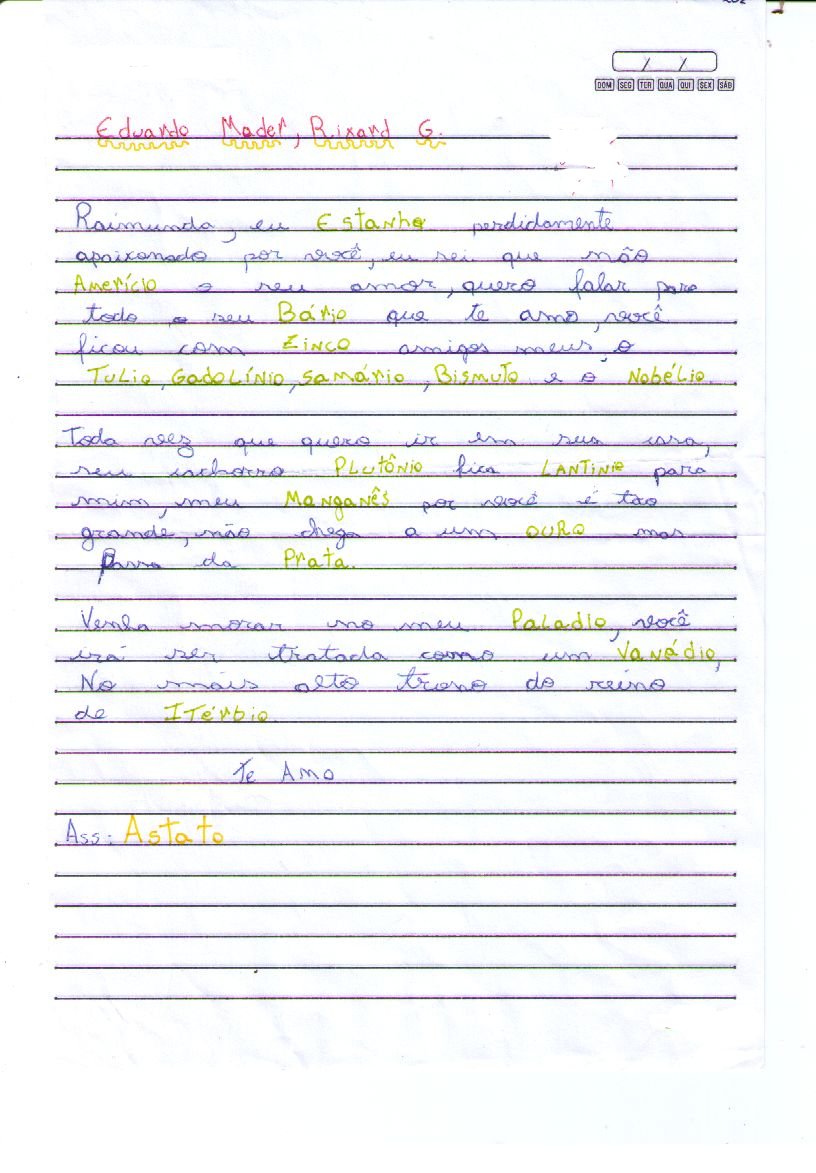 DOM SEG TER QUA QUI SEX SÁB
Eduardo Mader, Rixard G.
Raimunda, eu Estanho perdidamente
apaixonado por você, eu sei que não
Amerício o seu amor, quero falar para
todo o seu Bário que te amo, você
ficou com Zinco amigos meus, o
Tulio, Gadolínio, Samário, Bismuto e o Nobélio.
Toda vez que quero ir em sua casa,
seu cachorro Plutônio fica Lantinio para
mim, meu Manganês por você é tão
grande, não chega a um ouro mas
Passa da Prata.
Venha morar no meu Paladio, você
irá ser tratada como um Vanádio,
No mais alto trono do reino
de Itérbio
Te Amo
Ass: Astato